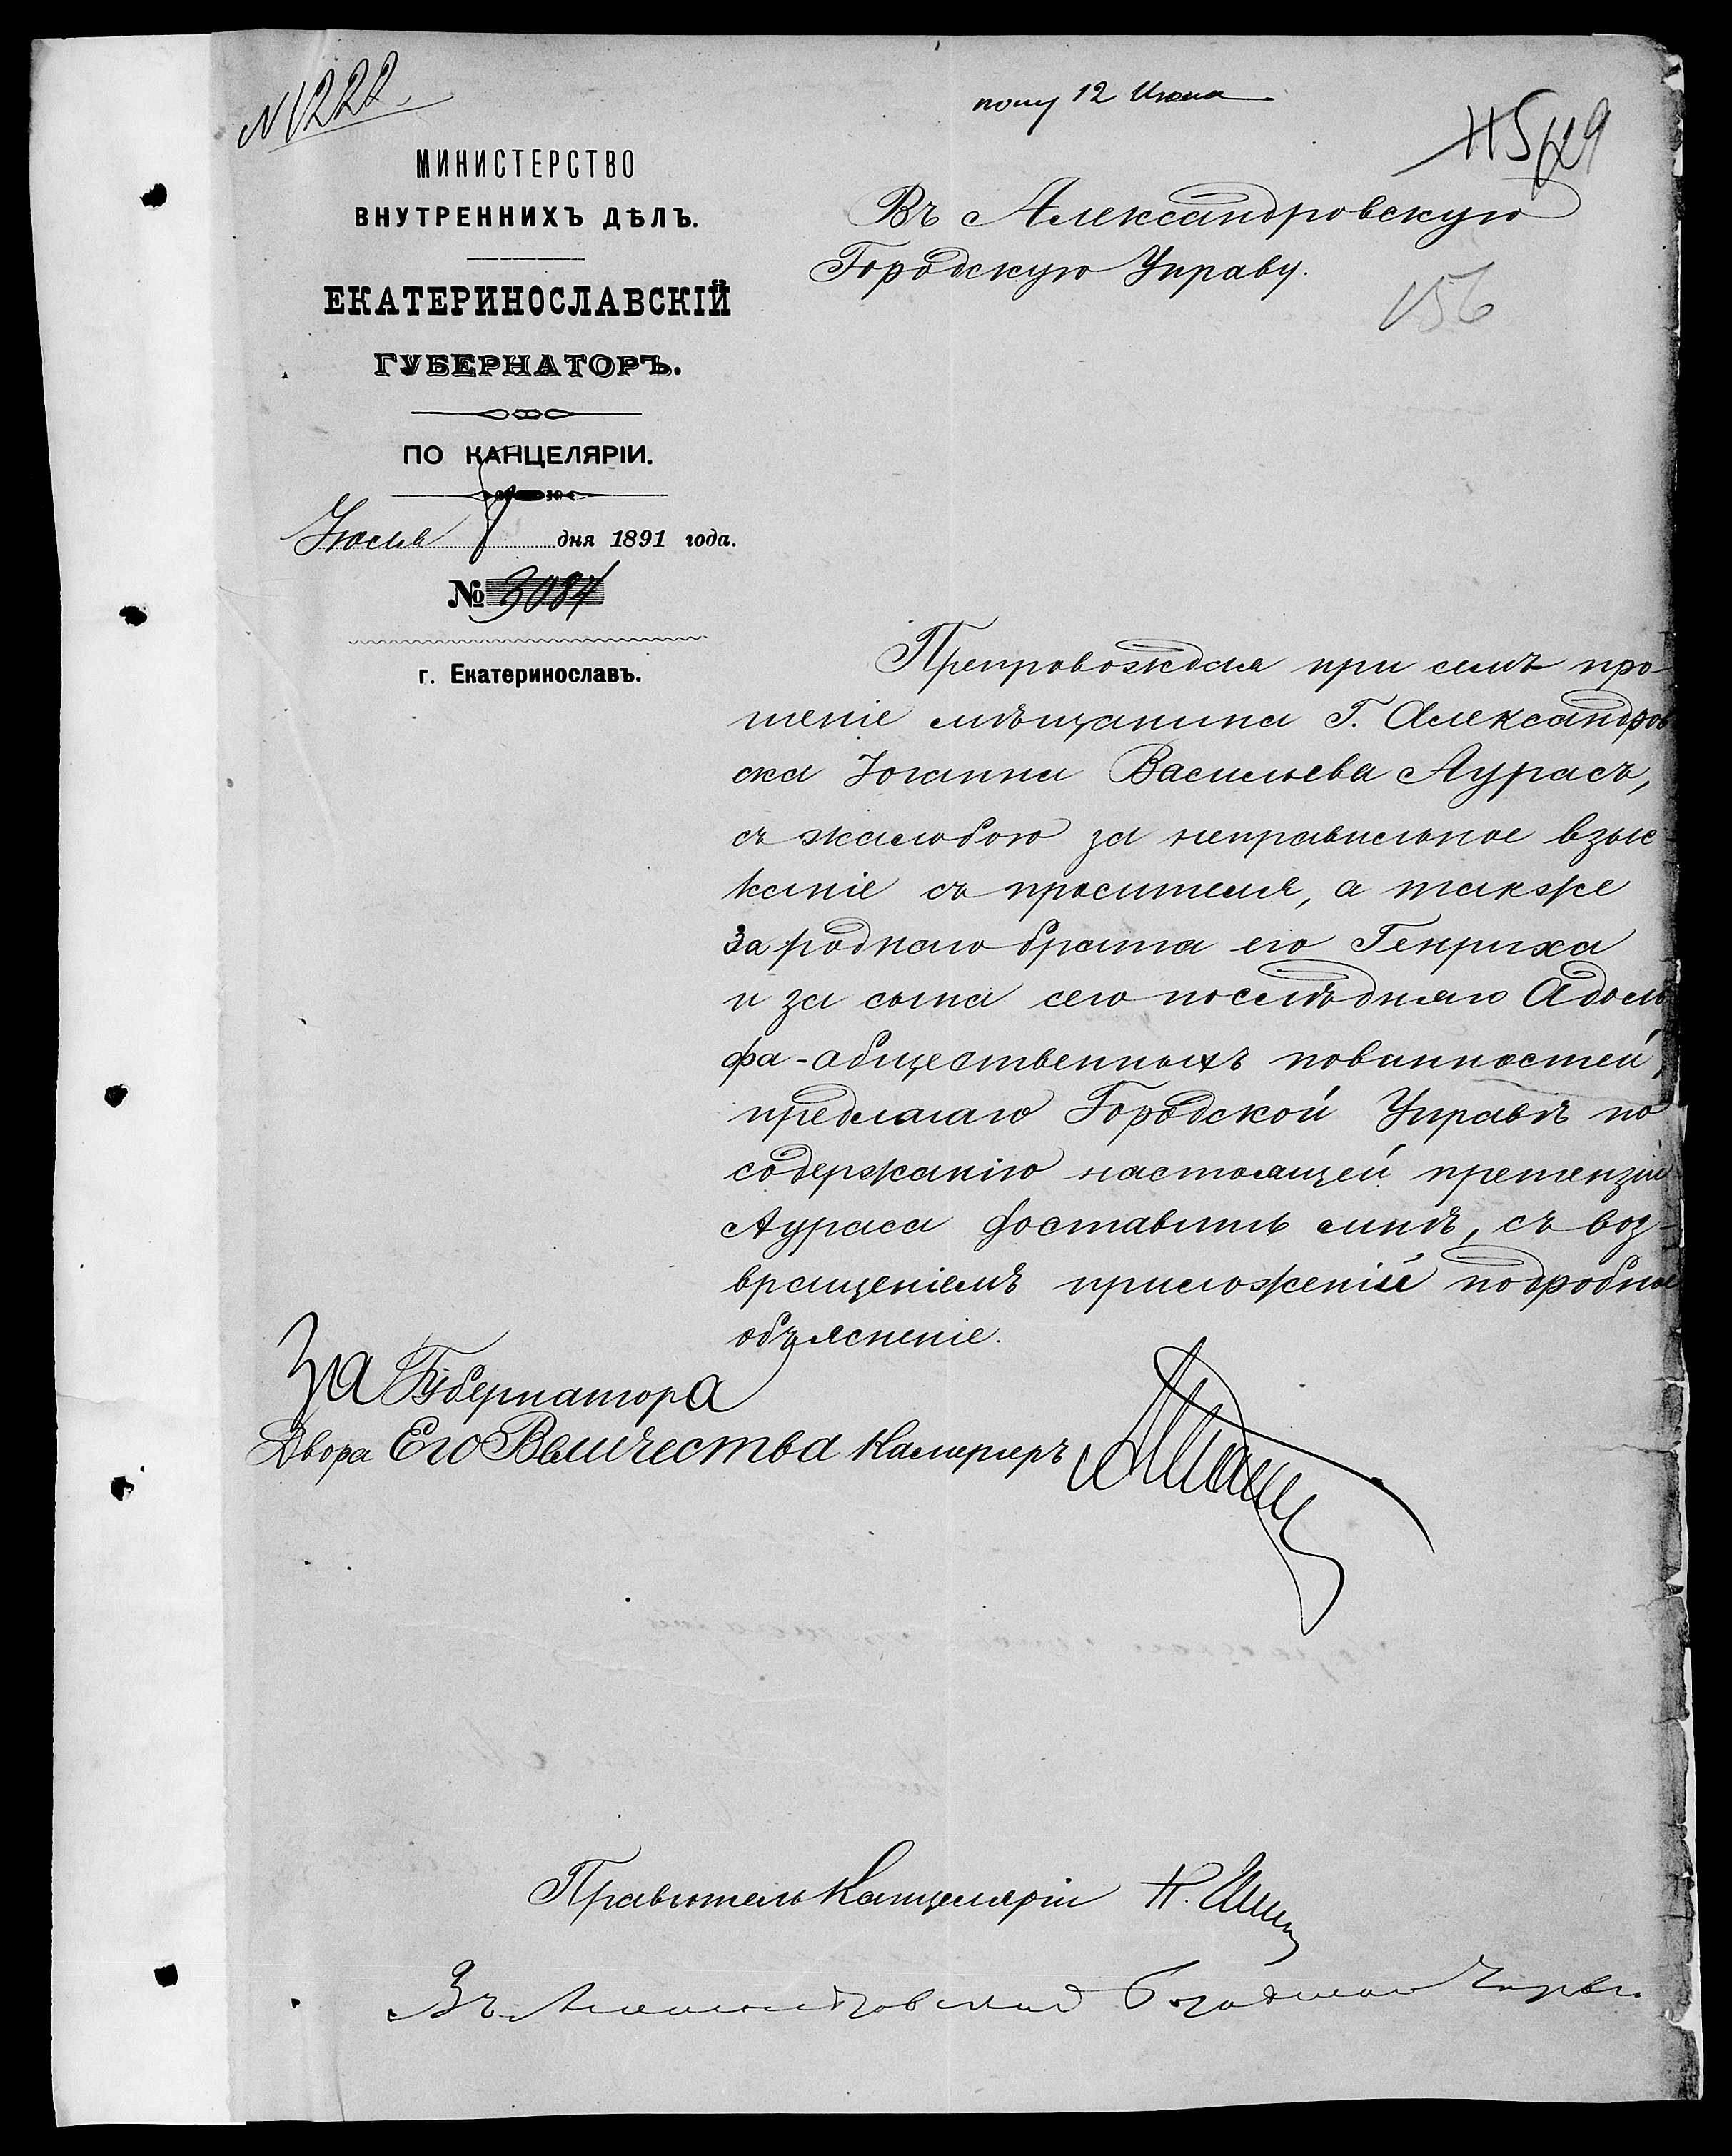 N 1222
полу 12 Июля
115
129
МИНИСТЕРСТВО
ВНУТРЕННИХЪ ДѢЛЪ.
ЕКАТЕРИНОСЛАВСКІЙ
ГУБЕРНАТОРЪ.
ПО КАНЦЕЛЯРІИ.
Июля 8 дня 1891 года.
№ 3084
г. Екатеринославъ.
Въ Александровскую
Городскую Управу.
156
Препровождая при семъ про-
шеніе мѣщанина Г. Александров
ска Іоганна Васильева Аурасъ,
съ жалобою за неправильное взыс
каніе съ просителя, а также
за роднаго брата его Генриха
и за сына сего послѣдняго Адоль
фа-общественныхъ повинностей,
предлагаю Городской Управѣ по
содержанію настоящей претензіи
Аураса доставить мнѣ, съ воз-
вращеніемъ приложеній подробное
объясненіе.
За Губернатора
Двора Его Величества Камергеръ
Правитель Канцеляріи